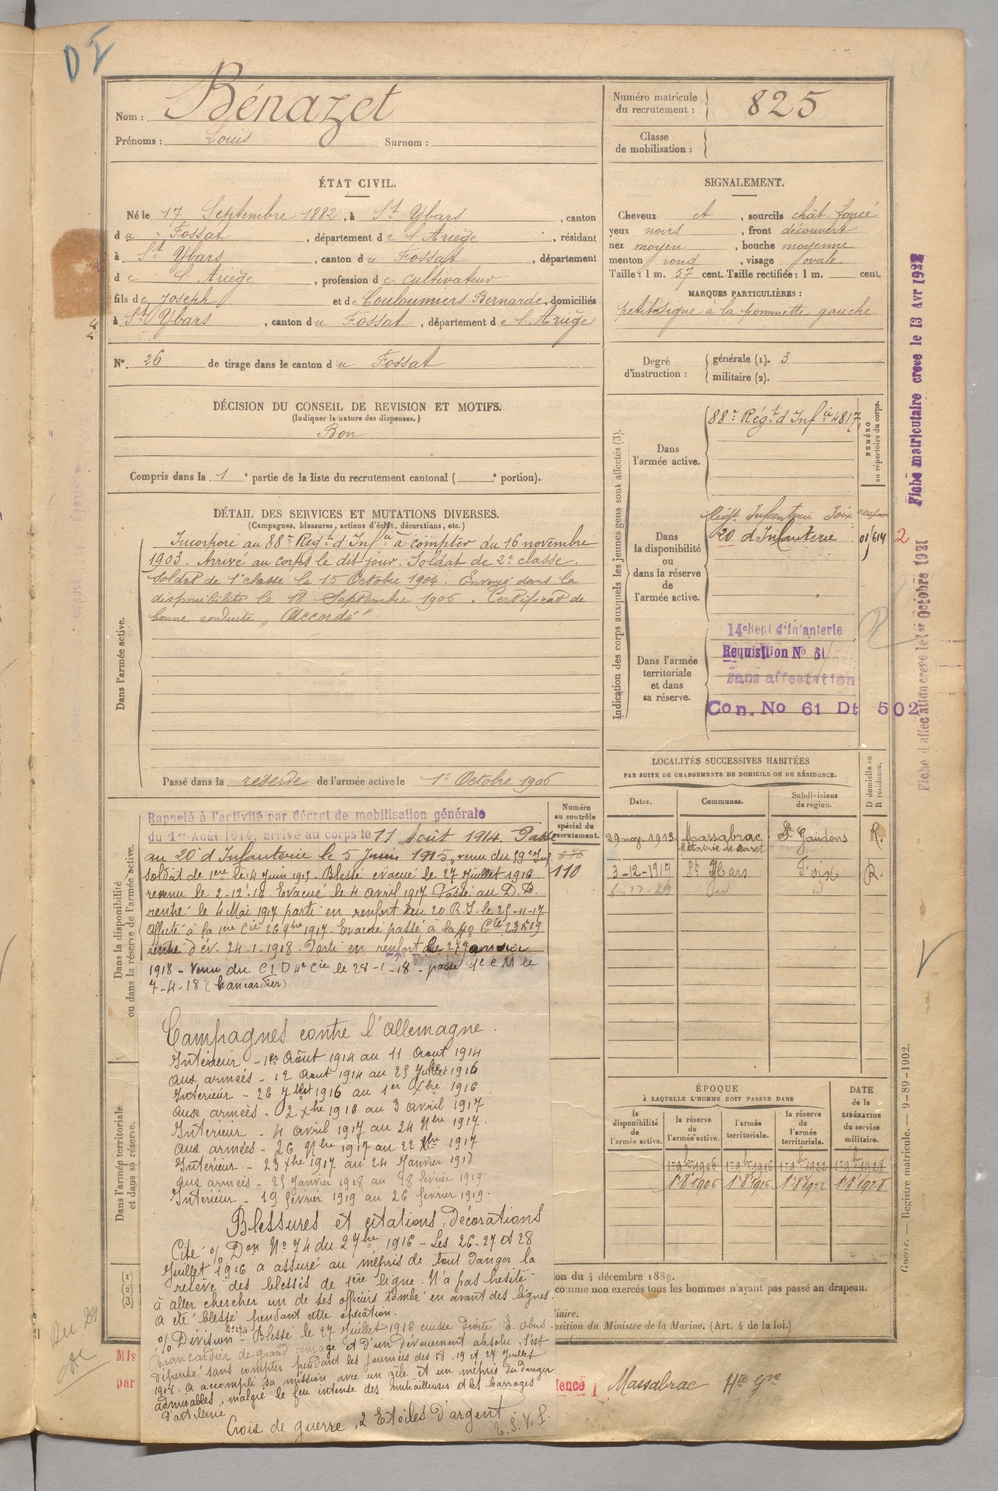 D I
Nom : Bénazet
Prénoms : Louis Surnom :
Numéro matricule du recrutement : 825
Classe de mobilisation :
ÉTAT CIVIL.
Né le 17 Septembre 1882, à St Ybars, canton
du Fossat, département de l'Ariège, résidant
à St Ybars, canton du Fossat, département
de l'Ariège, profession de cultivateur
fils de Joseph et de Couloumiers Bernarde, domiciliés
à St Ybars, canton du Fossat, département de l'Ariège
N° 26 de tirage dans le canton du Fossat
DÉCISION DU CONSEIL DE REVISION ET MOTIFS.
(Indiquer la nature des dispenses.)
Bon
Compris dans la 1e partie de la liste du recrutement cantonal ( e portion).
DÉTAIL DES SERVICES ET MUTATIONS DIVERSES.
(Campagnes, blessures, actions d'éclat, décorations, etc.)
Dans l'armée active.
Incorporé au 88e Régt d'Infie à compter du 16 novembre
1903. Arrivé au corps le dit jour. Soldat de 2e classe.
Soldat de 1e classe le 15 Octobre 1904. Envoyé dans la
disponibilité le 18 Septembre 1906. Certificat de
bonne conduite "Accordé"
Passé dans la réserve de l'armée active le 1er Octobre 1906
SIGNALEMENT.
Cheveux et, sourcils chât. foncé
yeux noirs, front découvert
nez moyen, bouche moyenne
menton rond, visage ovale
Taille : 1 m. 57 cent. Taille rectifiée : 1 m. cent.
MARQUES PARTICULIÈRES :
à la pommette gauche
Degré d'instruction : générale (1). 3
militaire (2).
Indication des corps auxquels les jeunes gens sont affectés (3).
NUMÉRO au répertoire du corps.
Dans l'armée active.
88e Régt d'Infie 4817
Dans la disponibilité ou dans la réserve de l'armée active.
Régt Infanterie Foix
20 d'Infanterie 01614 2
Dans l'armée territoriale et dans sa réserve.
14e Regt d'Infanterie
Requisition N° 61
Sans affectation
Con. No 61 Dt 502
Fiche matriculaire creee le 13 Avr 1922
Fiche d'affectation creee le 1er Octobre 1921
LOCALITÉS SUCCESSIVES HABITÉES
PAR SUITE DE CHANGEMENTS DE DOMICILE OU DE RÉSIDENCE.
Dates. Communes. Subdivisions de région. D domicile ou R résidence.
29 1913 Massabrac St Gaudens R.
3-12-1919 Foix R.
ÉPOQUE
À LAQUELLE L'HOMME DOIT PASSER DANS
la disponibilité de l'armée active. la réserve de l'armée active. l'armée territoriale. la réserve de l'armée territoriale.
DATE de la LIBÉRATION du service militaire.
1er 8bre 1906 1er 8bre 1916 1er 8bre 1922 1er 8bre 1928
Guerre. — Registre matricule. — 9-89-1902.
Dans la disponibilité ou dans la réserve de l'armée active.
Dans l'armée territoriale et dans sa réserve.
(1) (2) (3)
Numéro au contrôle spécial du recrutement.
110
Rappelé à l'activité par décret de mobilisation générale
du 1er Août 1914, arrivé au corps le 11 Août 1914. Passé
au 20e d'Infanterie le 5 Juin 1915, venu du 59e Inf.
Soldat de 1ere le 4 juin 1915. Blessé évacué le 27 juillet 1916
revenu le 2.12.16. Evacué le 4 avril 1917 Passé au D.D.
rentré le 4 Mai 1917 parti en renfort au 20 R.I. le 25-11-17
Affecté à la 1ere Cie 26 9bre 1917. Evacué passé à la
rentré d'év. 24-1-1918. Parti en renfort le 27 janvier
1918 - Venu du C I D 4e Cie le 28-1-18 - passé 1e C M le
7-4-18 (brancardier)
Campagnes contre l'Allemagne.
Intérieur - 1er Août 1914 au 11 Août 1914
aux armées - 12 Aout 1914 au 25 Juillet 1916
Interieur - 26 Jllet 1916 au 1er Xbre 1916
aux armées - 2 Xbre 1916 au 3 avril 1917
Interieur - 4 avril 1917 au 24 9bre 1917.
aux armées - 26 9bre 1917 au 22 Xbre 1917
Intérieur - 23 Xbre 1917 au 24 Janvier 1918
aux armées - 25 Janvier 1918 au 18 février 1919
Intérieur - 19 février 1919 au 26 février 1919.
Blessures et citations, décorations
Cité % Don N° 74 du 27 bre 1916 - Les 26-27 et 28
Juillet 1916 a assuré au mépris de tout danger la
relève des blessés de 1ère ligne. N'a pas hésité
à aller chercher un de ses officiers tombé en avant des lignes.
A été blessé pendant cette opération.
% Division Blessé le 27 Juillet 1916 cuisse droite E. obus
brancardier de grand courage et d'un dévouement absolu. S'est
dépensé sans compter pendant les journées des 18, 19 et 27 Juillet
1918. A accompli sa mission avec un zèle et un mépris du danger
admirables, malgré le feu intense des mitrailleuses et les barrages
d'artillerie.
Croix de guerre, 2 Etoiles d'argent.
T.S.V.P.
on du 4 décembre 1889.
comme non exercés tous les hommes n'ayant pas passé au drapeau.
iaire.
osition du Ministre de la Marine. (Art. 4 de la loi.)
Mis
par
dence Massabrac Hte Gne